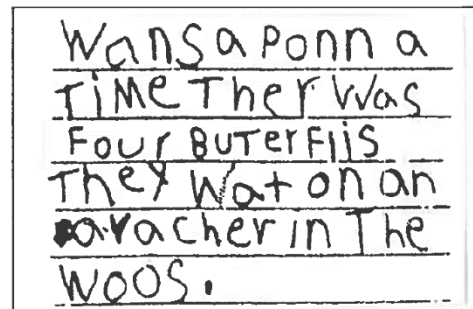 Wans a Ponn a
TiMe Ther Was
Four BuTerFlis
They Wat on an
avacher in The
WOOS.